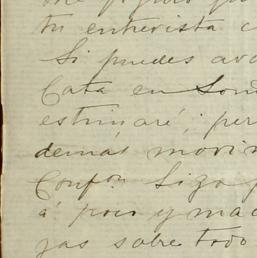 tu entrevista c
Si puedes ava
Cata en Lond
estimaré, per
demás movim
Confon Sigo p
á poco y mad
jas sobre todo